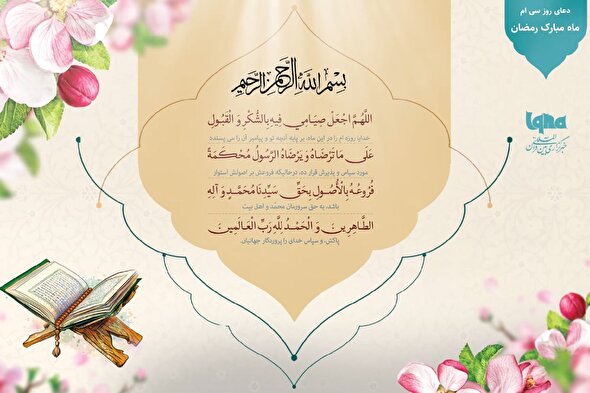 دعای روز سی ام
ماه مبارک رمضان
iqna
بِسْمِ اللَّهِ الرَّحْمَنِ الرَّحِيمِ
اللَّهُمَّ اجْعَلْ صِيَامِي فِيهِ بِالشُّكْرِ وَ الْقَبُولِ
خدایا روزه ام را در این ماه، بر پایه آنچه تو و پیامبر آن را می پسندد
عَلَى مَا تَرْضَاهُ وَ يَرْضَاهُ الرَّسُولُ مُحْكَمَةً
مورد سپاس و پذیرش قرار ده، درحالیکه فروعش بر اصولش استوار
فُرُوعُهُ بِالْأُصُولِ بِحَقِّ سَيِّدِنَا مُحَمَّدٍ وَ آلِهِ
باشد، به حق سرورمان محمد و اهل بیت
الطَّاهِرِينَ وَ الْحَمْدُ لِلَّهِ رَبِّ الْعَالَمِينَ
پاکش، و سپاس خدای را پروردگار جهانیان.